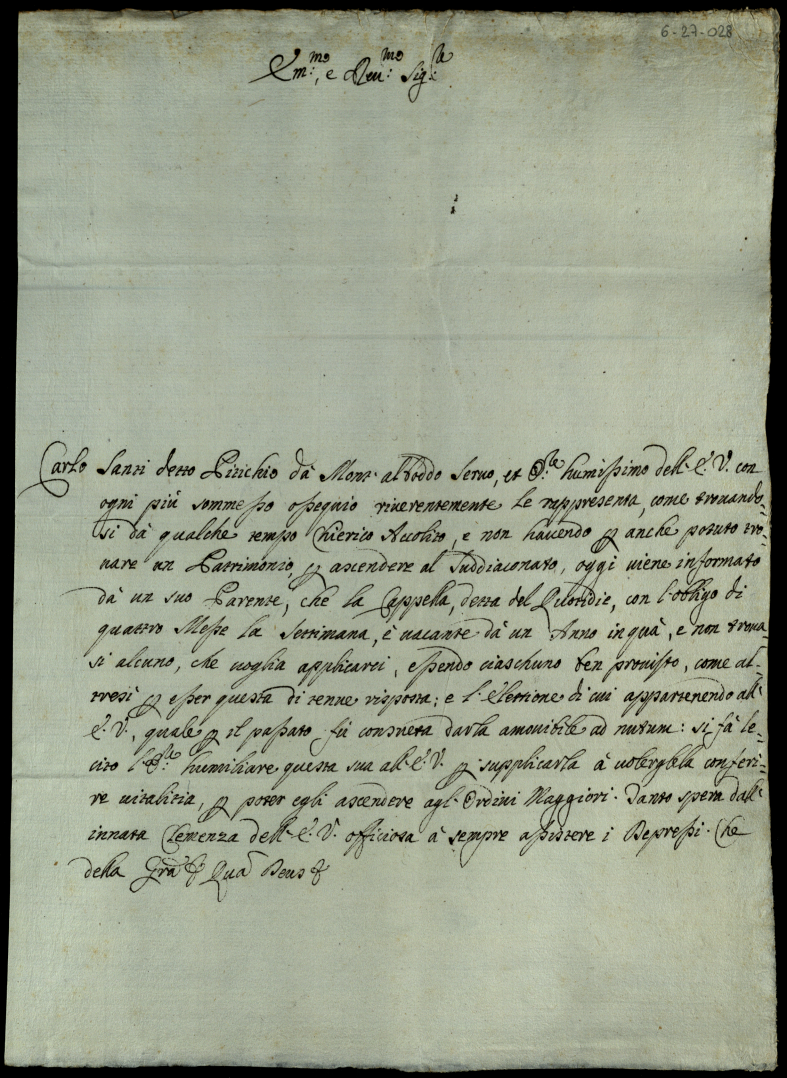 6-27-028
Em:mo, e Reu:mo Sig:re
Carlo Santi detto Pitichio dà Mont' alboddo Seruo, et O:re humissimo dell' E. V. con
ogni più sommesso ossequio riuerentemente le rappresenta, come trouando-
si dà qualche tempo Chierico Accolito, e non hauendo p anche potuto tro-
uare un Patrimonio, p ascendere al Suddiaconato, oggi uiene informato
dà un suo Parente, che la Cappella, detta del Quotidie, con l'obligo di
quattro Messe la Settimana, è uacante dà un Anno in quà, e non troua-
si alcuno, che uoglia applicarci, essendo ciaschuno ben prouisto, come al-
tresì p esser questa di tenue risposta; e l'elettione di cui appartenendo all'
E. V., quale p il passato fù consueta darla amouibile ad nutum: si fà le-
cito l'O:re humiliare questa sua all' E. V. p supplicarla à uolergliela conferi-
re uitalitia, p poter egli ascendere agl' Ordini Maggiori. Tanto spera dall'
innata Clemenza dell' E. V. officiosa à sempre assistere i Depressi. Che
della Gra &c Quã Deus &c